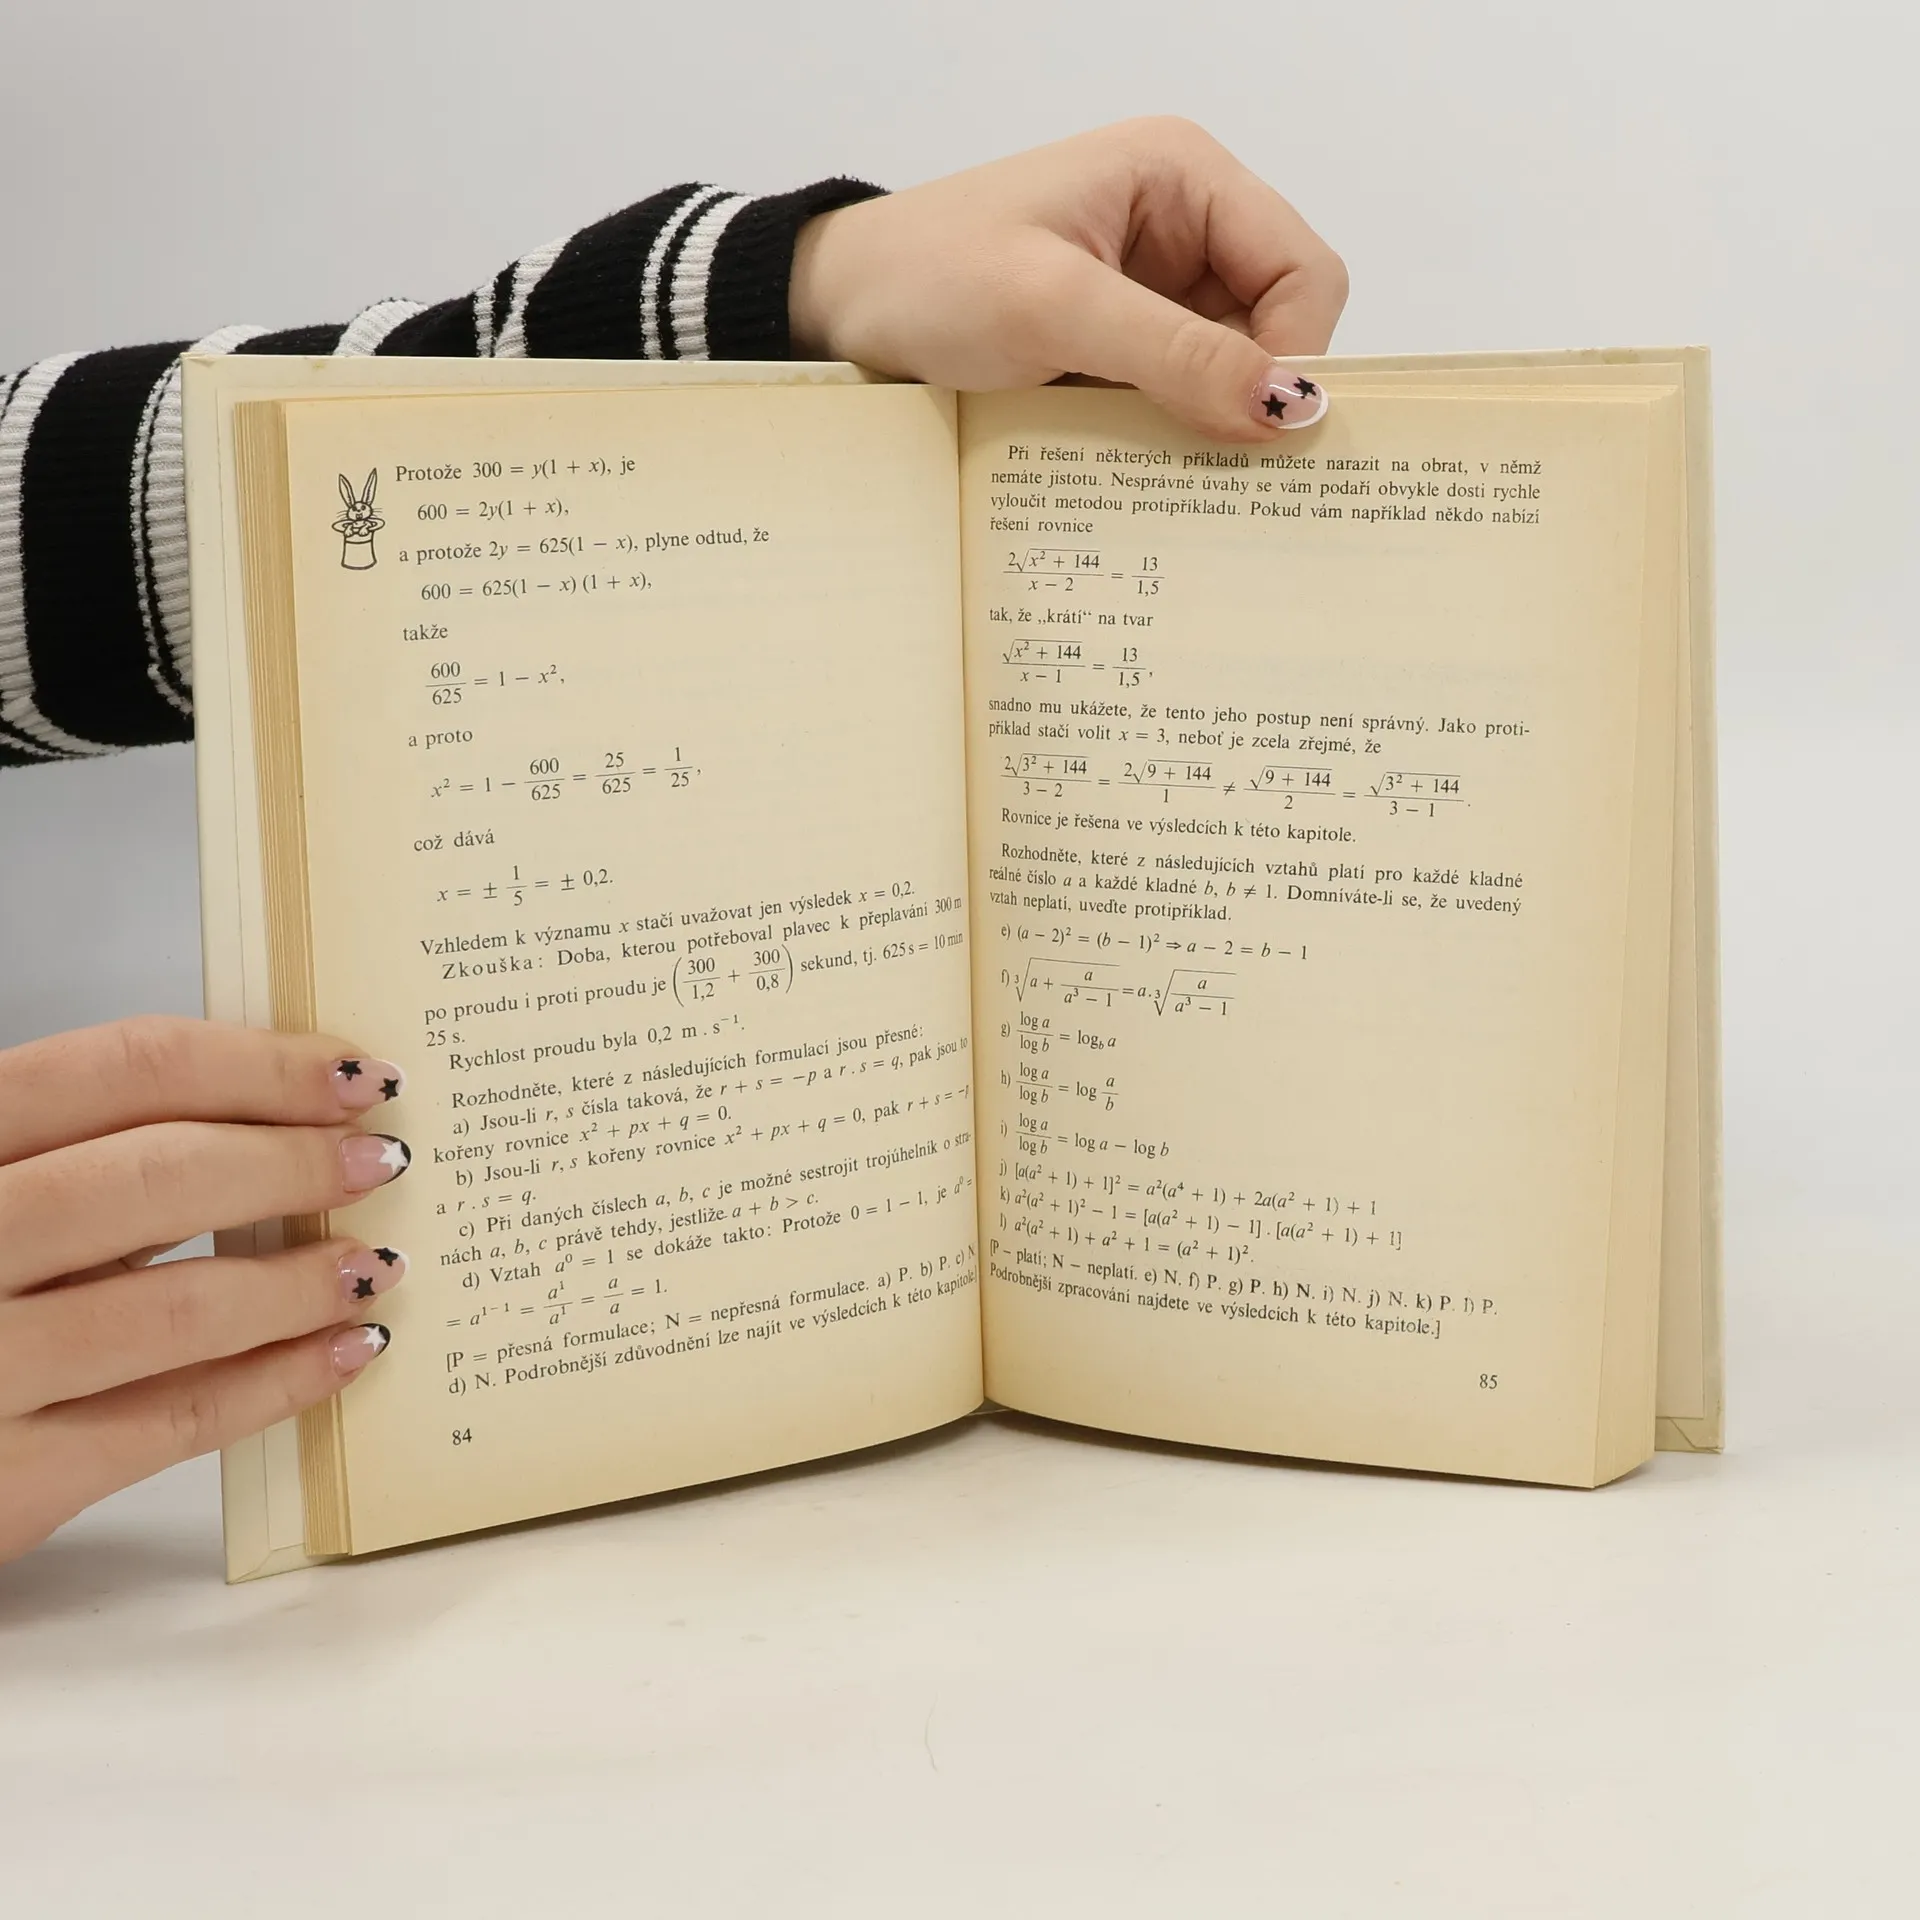 Protože 300 = y(1 + x), je
600 = 2y(1 + x),
a protože 2y = 625(1 − x), plyne odtud, že
600 = 625(1 − x) (1 + x),
takže
600/625 = 1 − x²,
a proto
x² = 1 − 600/625 = 25/625 = 1/25,
což dává
x = ± 1/5 = ± 0,2.
Vzhledem k významu x stačí uvažovat jen výsledek x = 0,2.
Zkouška: Doba, kterou potřeboval plavec k přeplavání 300 m
po proudu i proti proudu je (300/1,2 + 300/0,8) sekund, tj. 625 s = 10 min
25 s.
Rychlost proudu byla 0,2 m . s⁻¹.
Rozhodněte, které z následujících formulací jsou přesné:
a) Jsou-li r, s čísla taková, že r + s = −p a r . s = q, pak jsou to
kořeny rovnice x² + px + q = 0.
b) Jsou-li r, s kořeny rovnice x² + px + q = 0, pak r + s = −p
a r . s = q.
c) Při daných číslech a, b, c je možné sestrojit trojúhelník o stra-
nách a, b, c právě tehdy, jestliže a + b > c.
d) Vztah a⁰ = 1 se dokáže takto: Protože 0 = 1 − 1, je a⁰ =
= a¹⁻¹ = a¹/a¹ = a/a = 1.
[P = přesná formulace; N = nepřesná formulace. a) P. b) P. c) N
d) N. Podrobnější zdůvodnění lze najít ve výsledcích k této kapitole.]
84
Při řešení některých příkladů můžete narazit na obrat, v němž
nemáte jistotu. Nesprávné úvahy se vám podaří obvykle dosti rychle
vyloučit metodou protipříkladu. Pokud vám například někdo nabízí
řešení rovnice
2√(x² + 144)/(x − 2) = 13/1,5
tak, že „krátí“ na tvar
√(x² + 144)/(x − 1) = 13/1,5,
snadno mu ukážete, že tento jeho postup není správný. Jako proti-
příklad stačí volit x = 3, neboť je zcela zřejmé, že
2√(3² + 144)/(3 − 2) = 2√(9 + 144)/1 ≠ √(9 + 144)/2 = √(3² + 144)/(3 − 1).
Rovnice je řešena ve výsledcích k této kapitole.
Rozhodněte, které z následujících vztahů platí pro každé kladné
reálné číslo a a každé kladné b, b ≠ 1. Domníváte-li se, že uvedený
vztah neplatí, uveďte protipříklad.
e) (a − 2)² = (b − 1)² ⇒ a − 2 = b − 1
f) ∛(a + a/(a³ − 1)) = a . ∛(a/(a³ − 1))
g) log a/log b = log_b a
h) log a/log b = log a/b
i) log a/log b = log a − log b
j) [a(a² + 1) + 1]² = a²(a⁴ + 1) + 2a(a² + 1) + 1
k) a²(a² + 1)² − 1 = [a(a² + 1) − 1] . [a(a² + 1) + 1]
l) a²(a² + 1) + a² + 1 = (a² + 1)².
[P – platí; N – neplatí. e) N. f) P. g) P. h) N. i) N. j) N. k) P. l) P.
Podrobnější zpracování najdete ve výsledcích k této kapitole.]
85